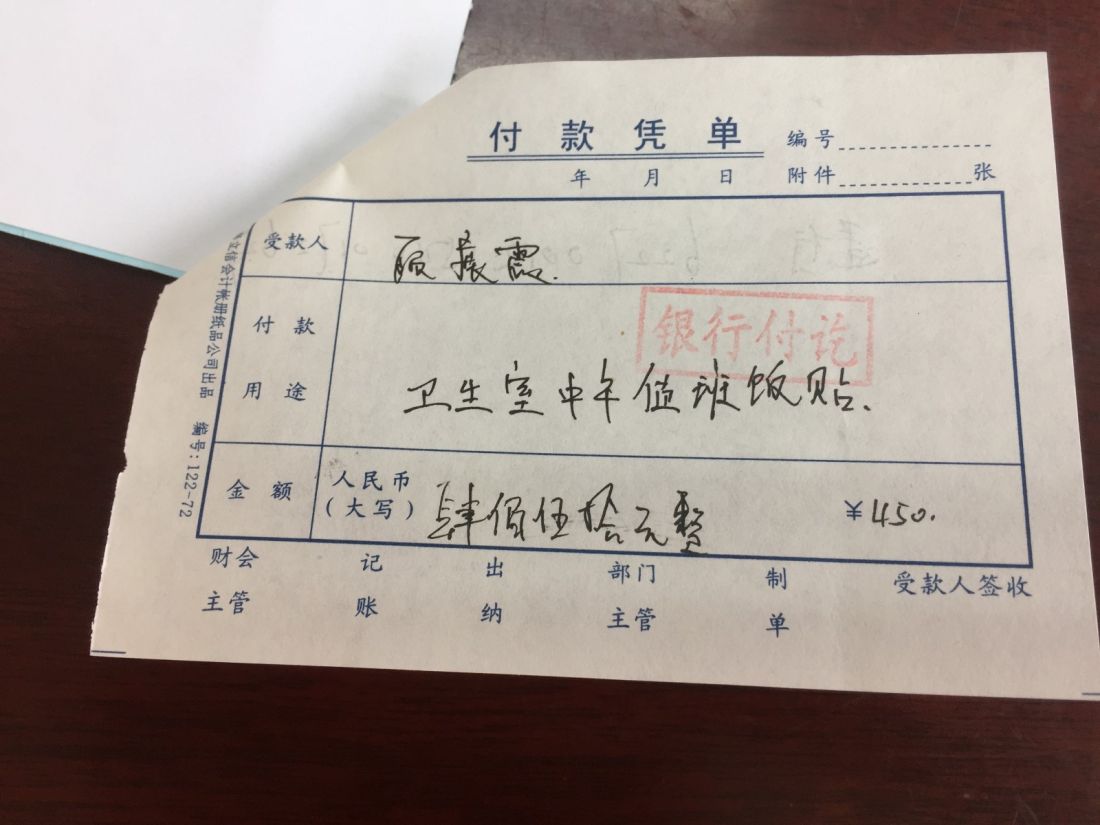 付款凭单
编号
年 月 日
附件 张
受款人 振霞.
付款用途
银行付讫
卫生室中午值班饭贴.
金额 人民币(大写) 肆佰伍拾元整 ¥450.
财会主管 记账 出纳 部门主管 制单 受款人签收
文信会计帐册纸品公司出品 编号:122-72